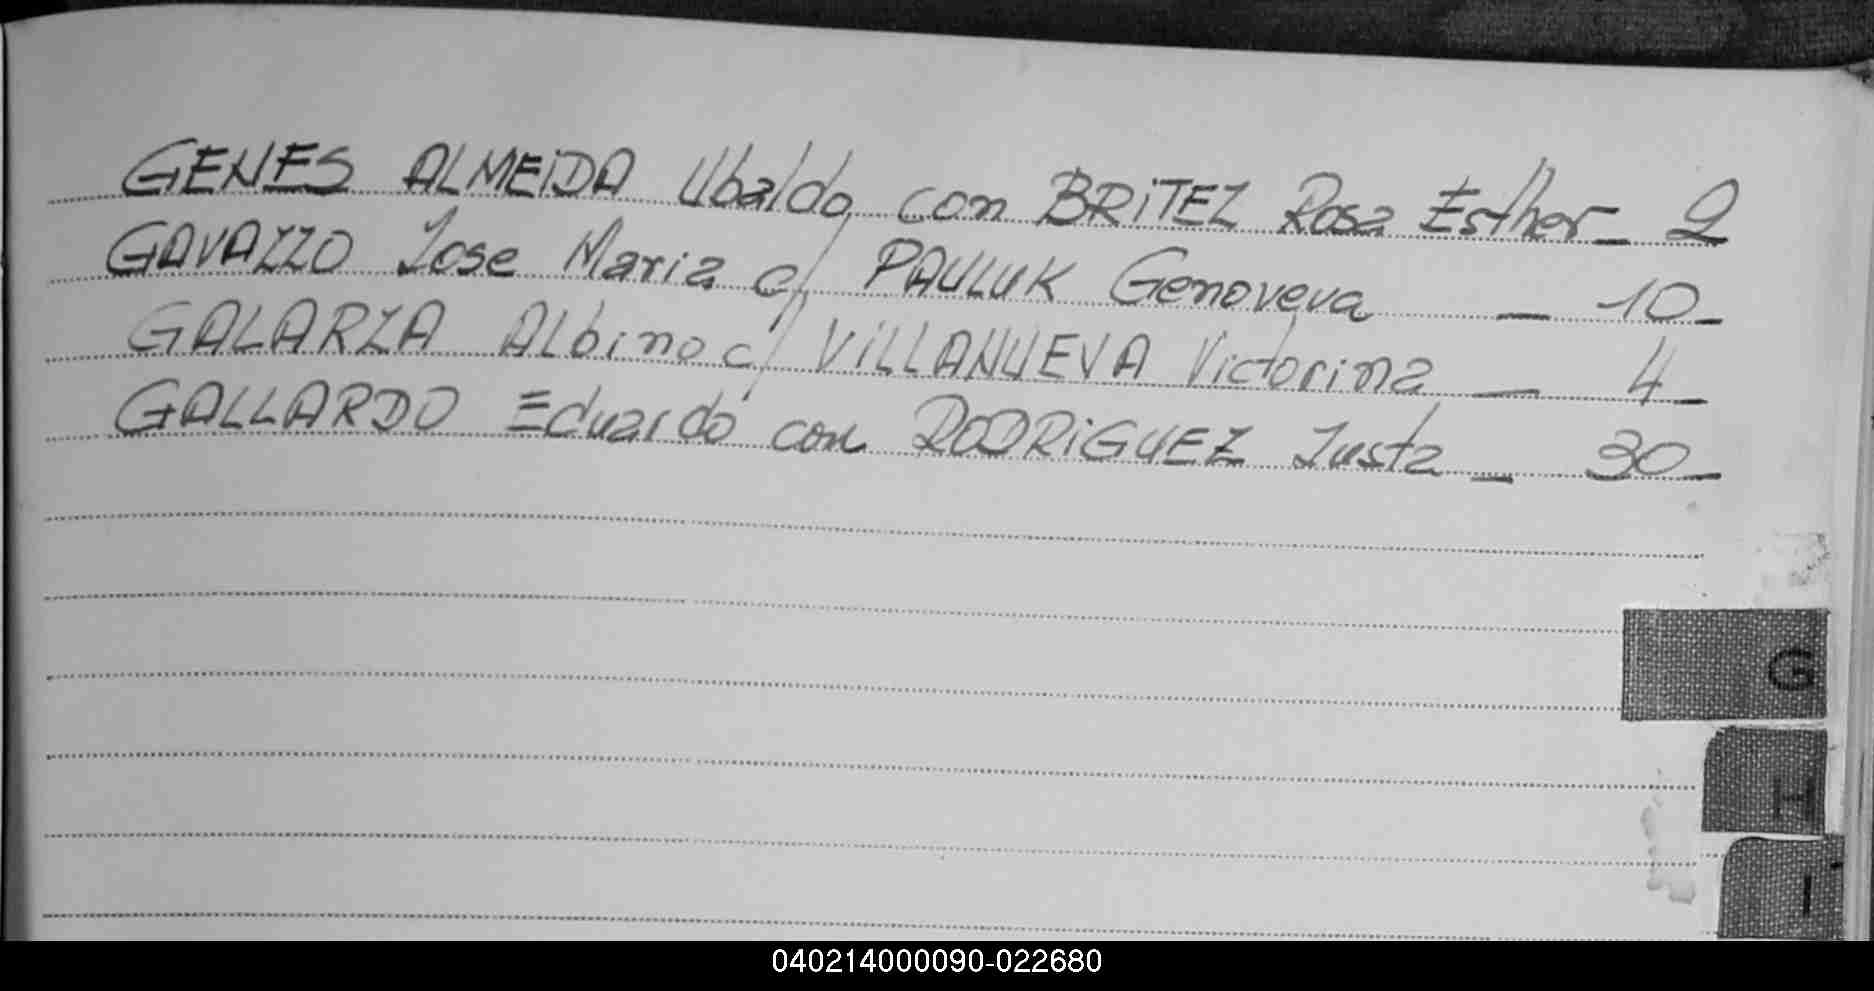 GENES ALMEIDA Ubaldo con BRITEZ Rosa Esther _ 2
GAVAZZO Jose Maria c/ PAULUK Genoveva _ 10 _
GALARZA Albino c/ VILLANUEVA Victorina _ 4 _
GALLARDO Eduardo con RODRIGUEZ Justa _ 30 _
G
H
I
040214000090-022680